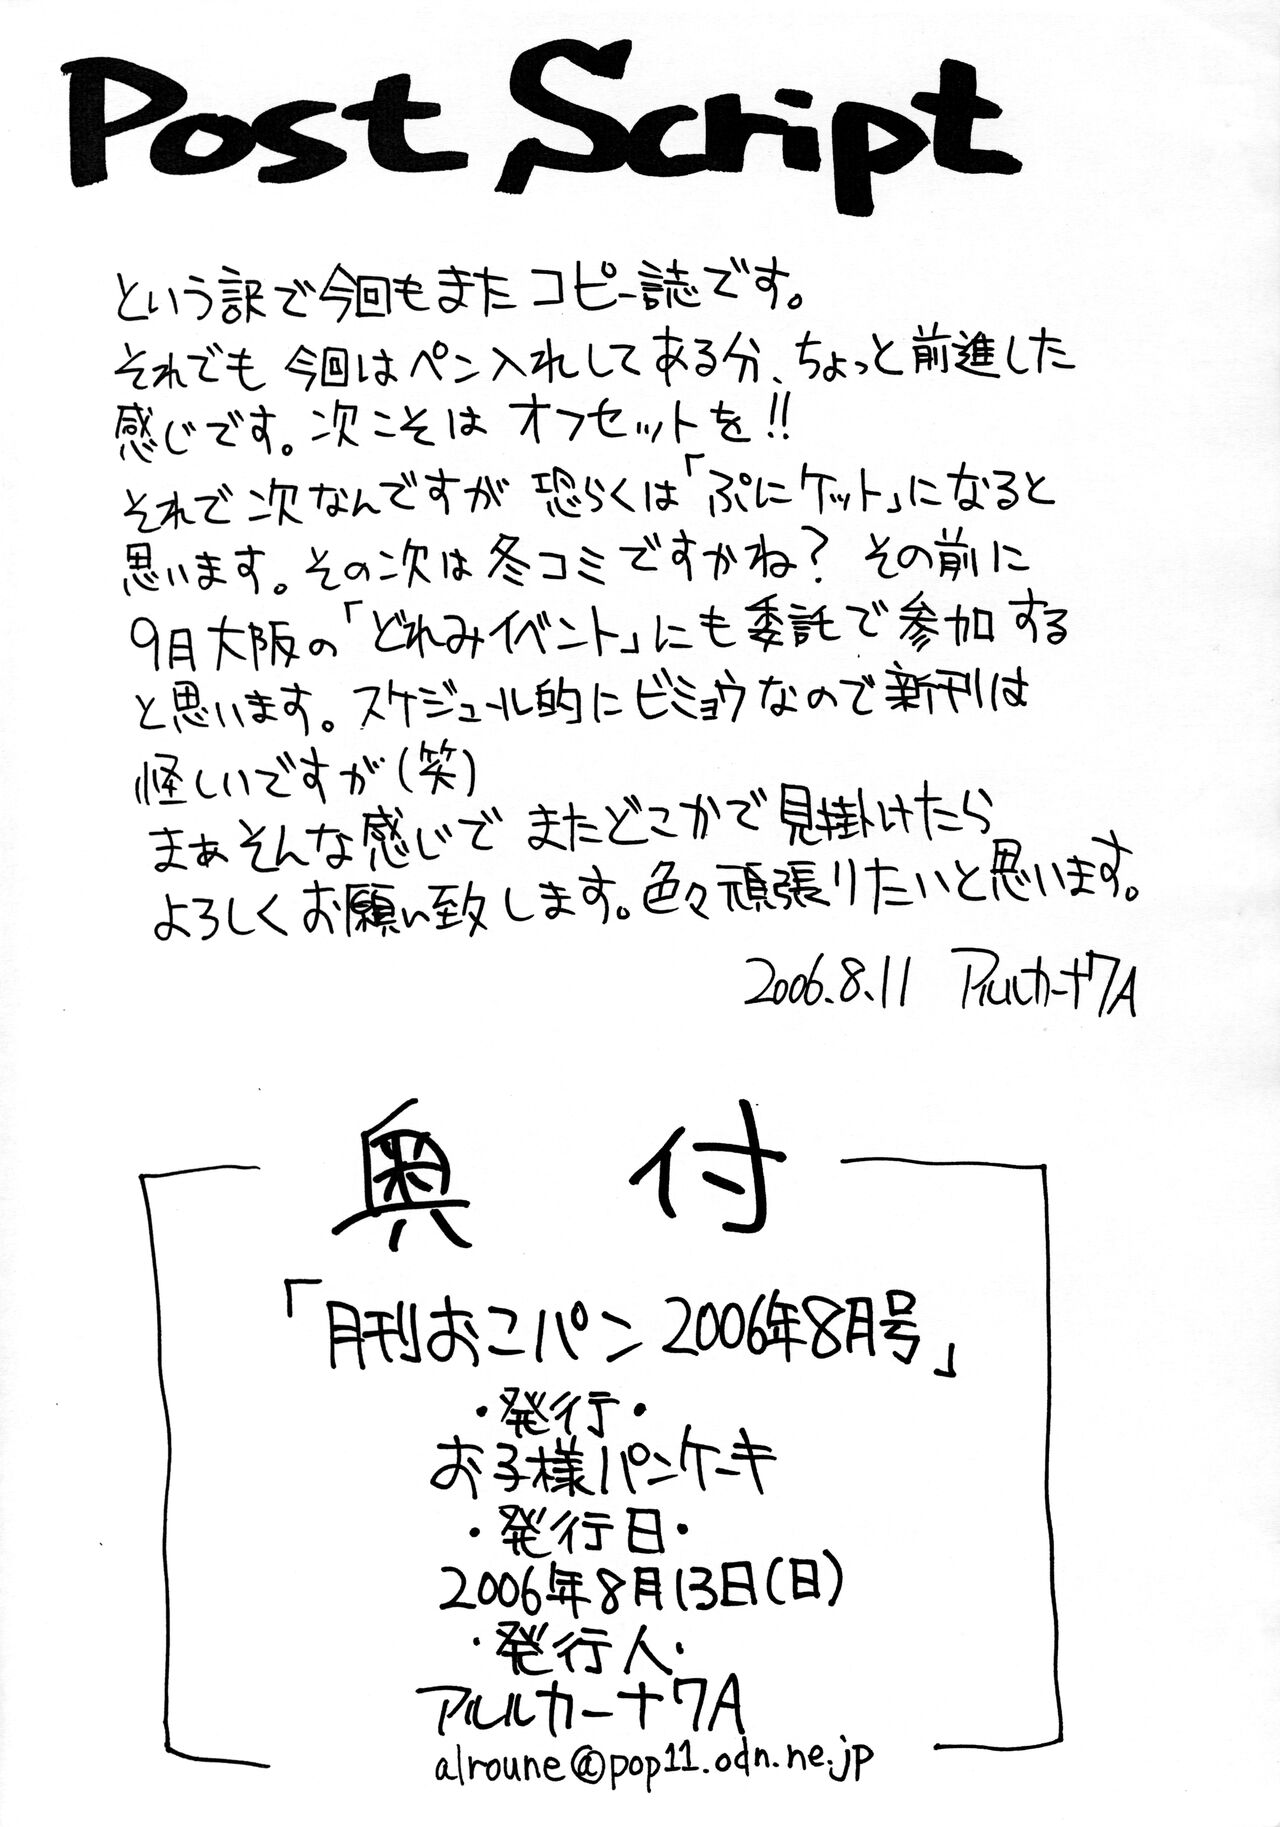 Post Script
という訳で今回もまたコピー誌です。
それでも今回はペン入れしてある分、ちょっと前進した
感じです。次こそはオフセットを!!
それで次なんですが恐らくは「ぷにケット」になると
思います。その次は冬コミですかね?その前に
9月大阪の「どれみイベント」にも委託で参加する
と思います。スケジュール的にビミョウなので新刊は
怪しいですが(笑)
まぁそんな感じでまたどこかで見掛けたら
よろしくお願い致します。色々頑張りたいと思います。
2006.8.11 アルルカーナ7A
奥付
「月刊おこパン2006年8月号」
・発行・
お子様パンケーキ
・発行日・
2006年8月13日(日)
・発行人・
アルルカーナ7A
alroune@pop11.odn.ne.jp